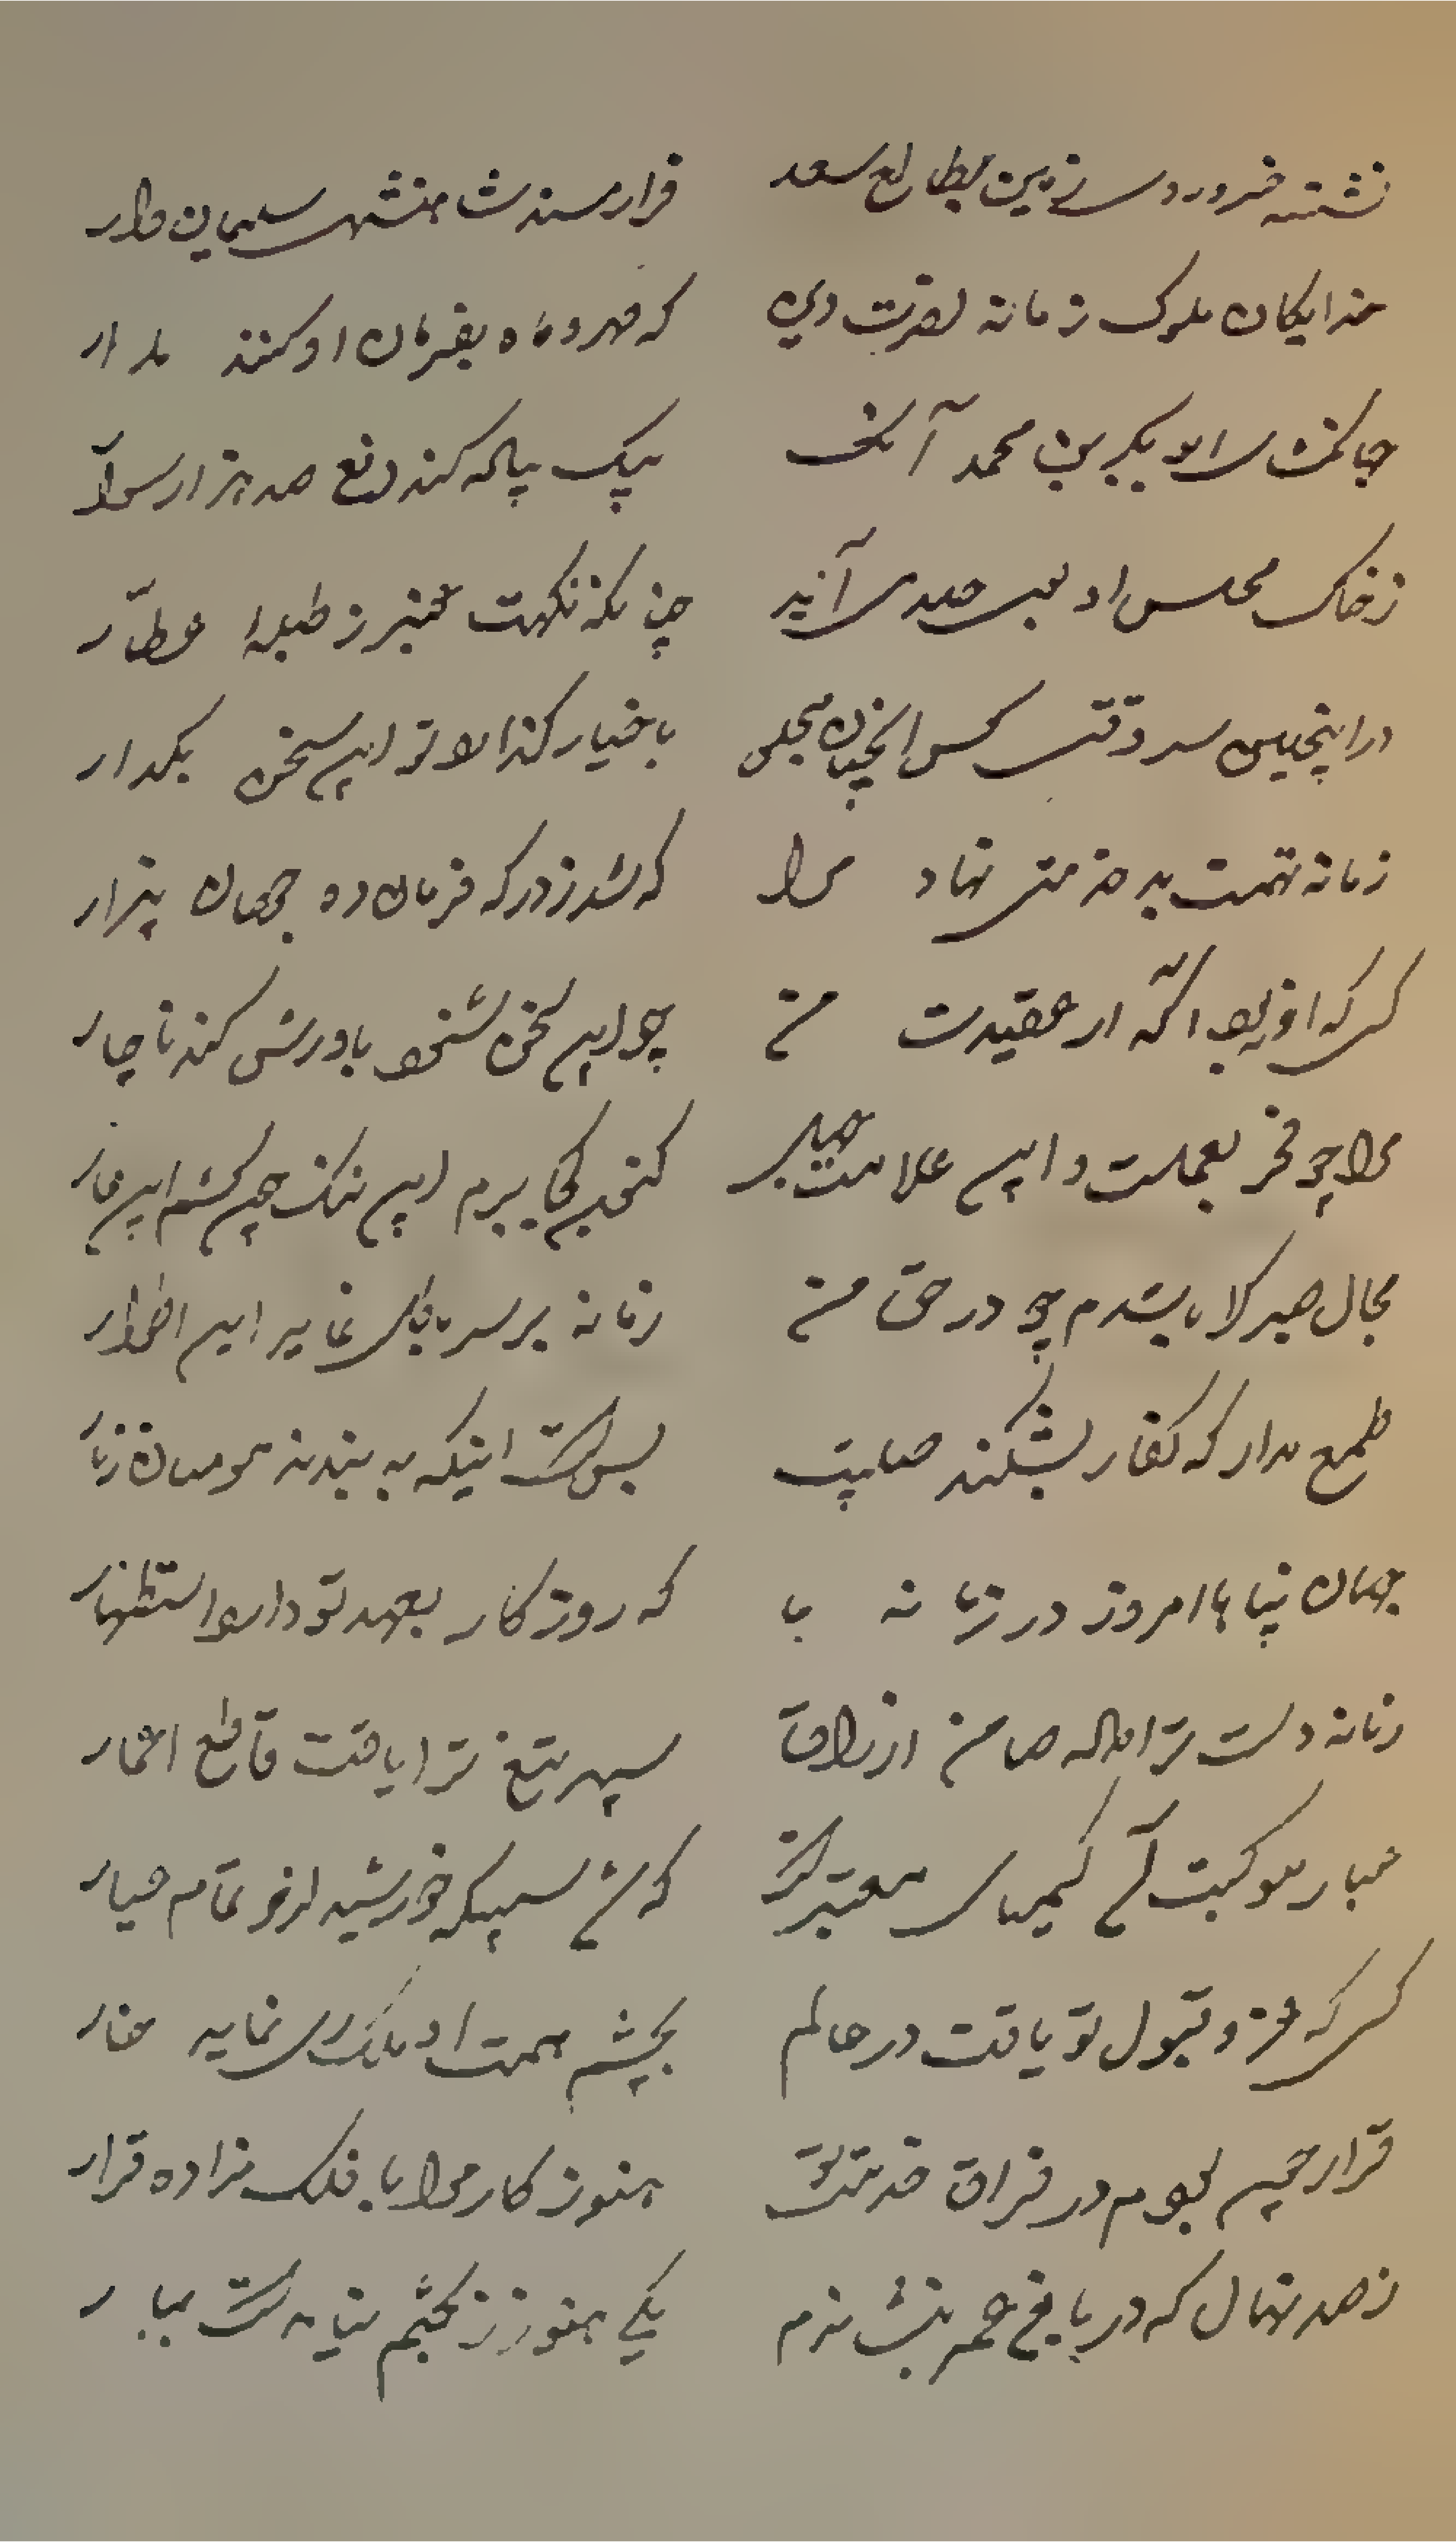 نشسته خسرو روی زمین بطالع سعد فراز مسند شاهنشهی سلیمان وار
خدایکان ملوک زمانه نصرت دین که مهر و ماه بفرمان او کنند مدار
ابوبکر بن محمد آنک بیک پیاله کند دفع صد هزار سوار
ز خاک مجلس او بوی خلد می آید چنانکه نکهت عنبر ز طبله عطار
در اینچنین سر وقتی کسی چنان مجلس باختیار کند لا تو این سخن بکدار
زمانه تهمت بد خدمتی نهاد مرا که شد ز درکه فرمان ده جهان بیزار
کسی که او نبود اکه از عقیدت من چو این سخن شنود باورش کند ناچار
مرا چو فخر بعملست و این علامت جهل کنون کجا برم این ننک چون کشم این عار
مجال صبر کجا باشدم چو در حق من زمانه بر سر باطل نماید این اصرار
طمع مدار که کفار بشکند صلیب بس است اینکه به بندند مومنان زنار
جهان پناها امروز در زمانه با که روزکار بعهد تو دارد استظهار
زمانه دست ترا ضامن ارزاق سپهر تیغ ترا یافت قاطع اعمار
غبار موکبت آن کیمیای معتبر است که شد سبیکه خورشید ازو تمام عیار
کسی که عز و قبول تو یافت در عالم بچشم همت او ملک می نماید خوار
قرار چون بودم در فراق خدمت تو هنوز کار مرا با فلک نداده قرار
ز صد نهال که در باغ عمر بنشاندم یکی هنوز ز بختم نیامدست ببار